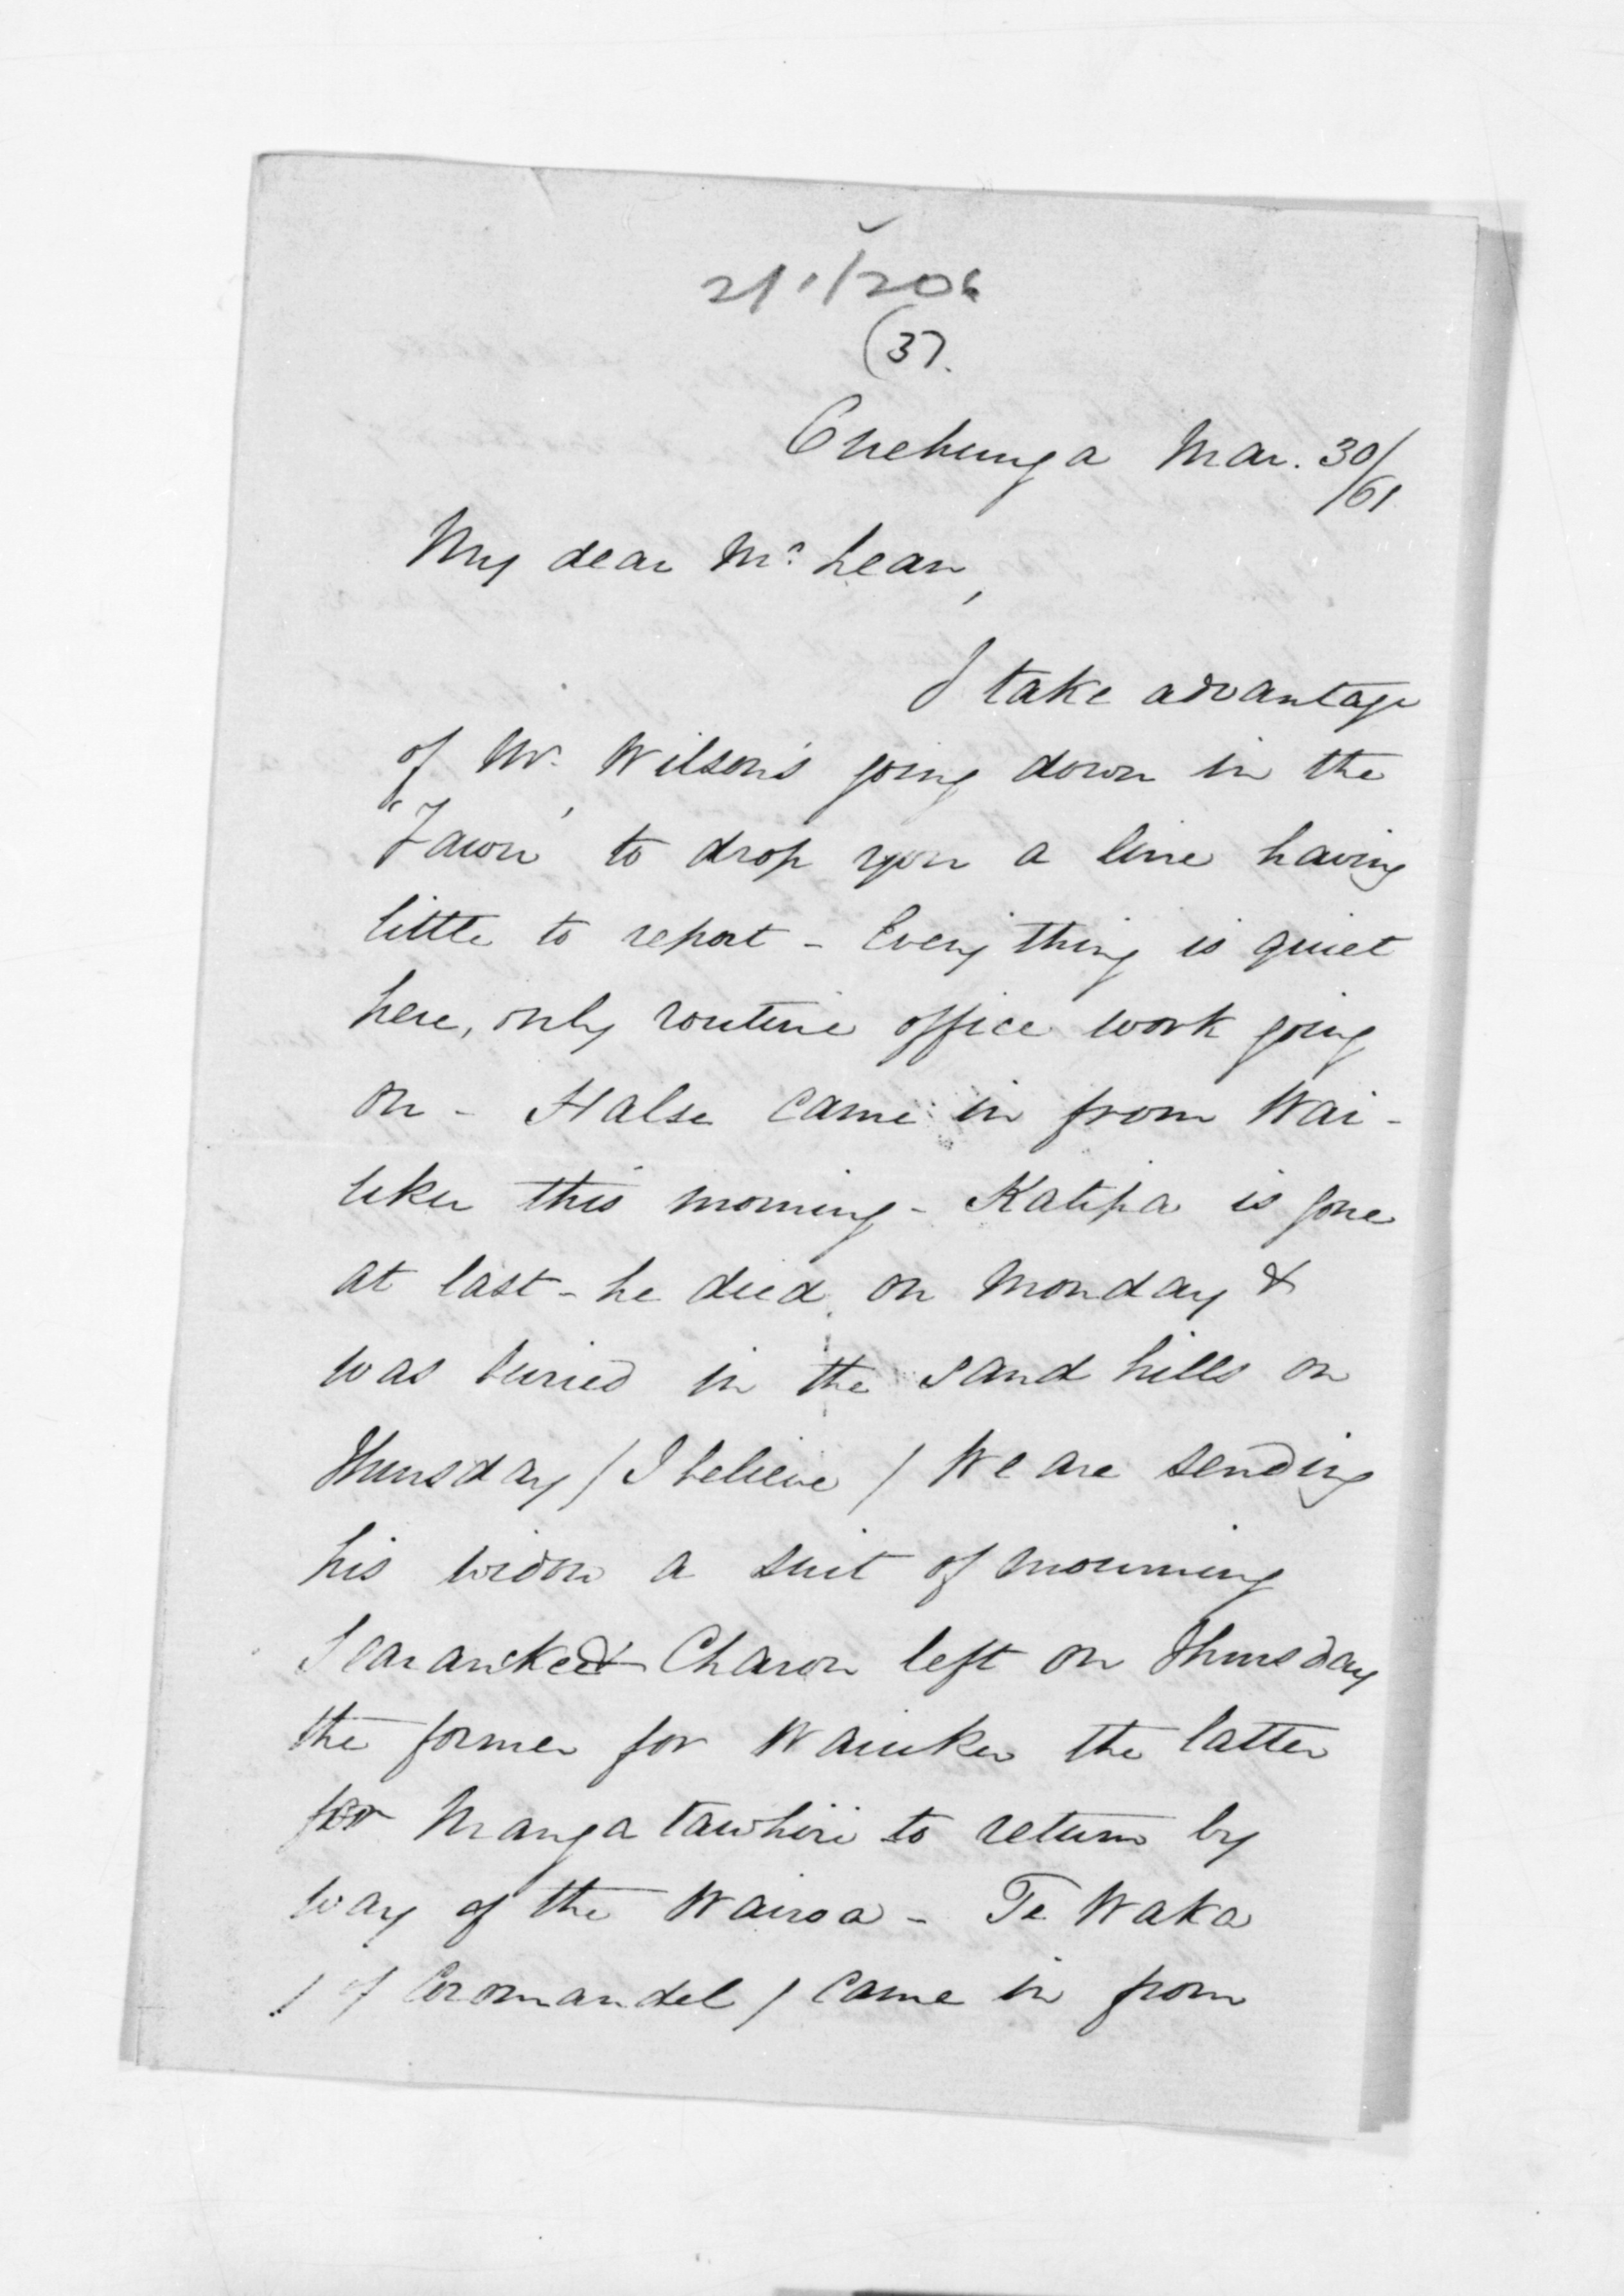 21/1/206
(37.
Onehunga Mar. 30/61
My dear McLean,
I take advantage
of Mr. Wilson's going down in the
"Fawn" to drop you a line having
little to report - Every thing is quiet
here, only routine office work going
on - Halse came in from Wai-
uku this morning - Katipa is gone
at last - he died on Monday &
was buried in the sand hills on
Thursday / I believe / We are sending
his widow a suit of mourning
Searancke & Charon left on Thursday
the former for Waiuku the latter
for Manga tawhiri to return by
way of the Wairoa - Te Waka
/ of Coromandel / came in from